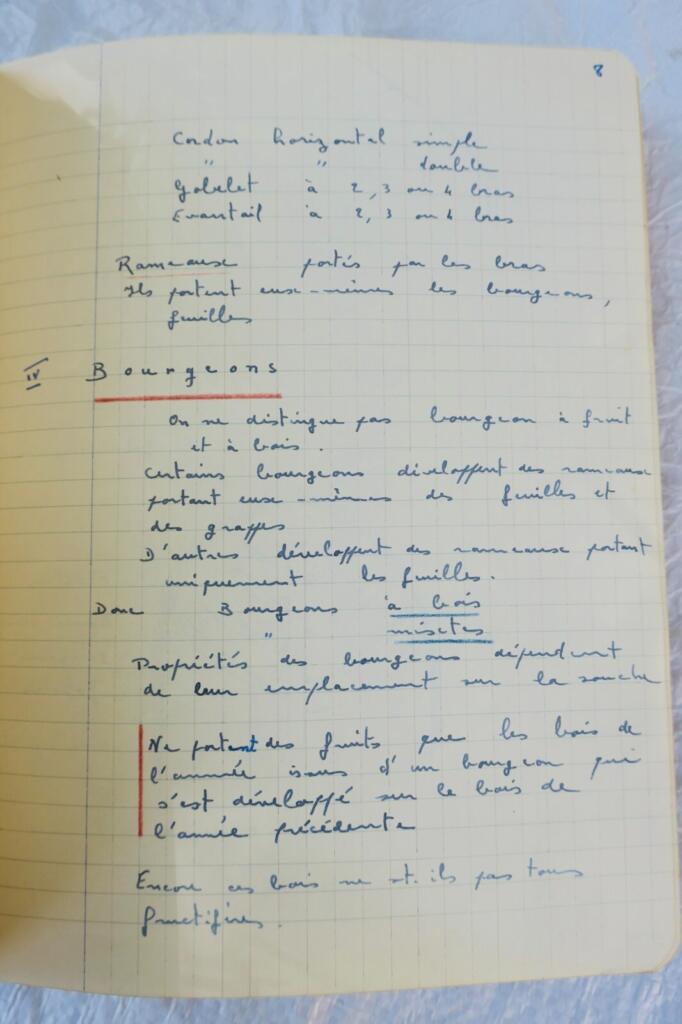 8
Cordon horizontal simple
" " double
Gobelet à 2, 3 ou 4 bras
Evantail à 2, 3 ou 4 bras
Rameaux portés par les bras
Ils portent eux-mêmes les bourgeons,
feuilles
IV Bourgeons
On ne distingue pas bourgeon à fruit
et à bois.
Certains bourgeons développent des rameaux
portant eux-mêmes des feuilles et
des grappes
D'autres développent des rameaux portant
uniquement les feuilles.
Donc Bourgeons à bois
" mixtes
Propriétés des bourgeons dépendent
de leur emplacement sur la souche
Ne portent des fruits que les bois de
l'année issus d'un bourgeon qui
s'est développé sur le bois de
l'année précédente
Encore ces bois ne st-ils pas tous
fructifères.